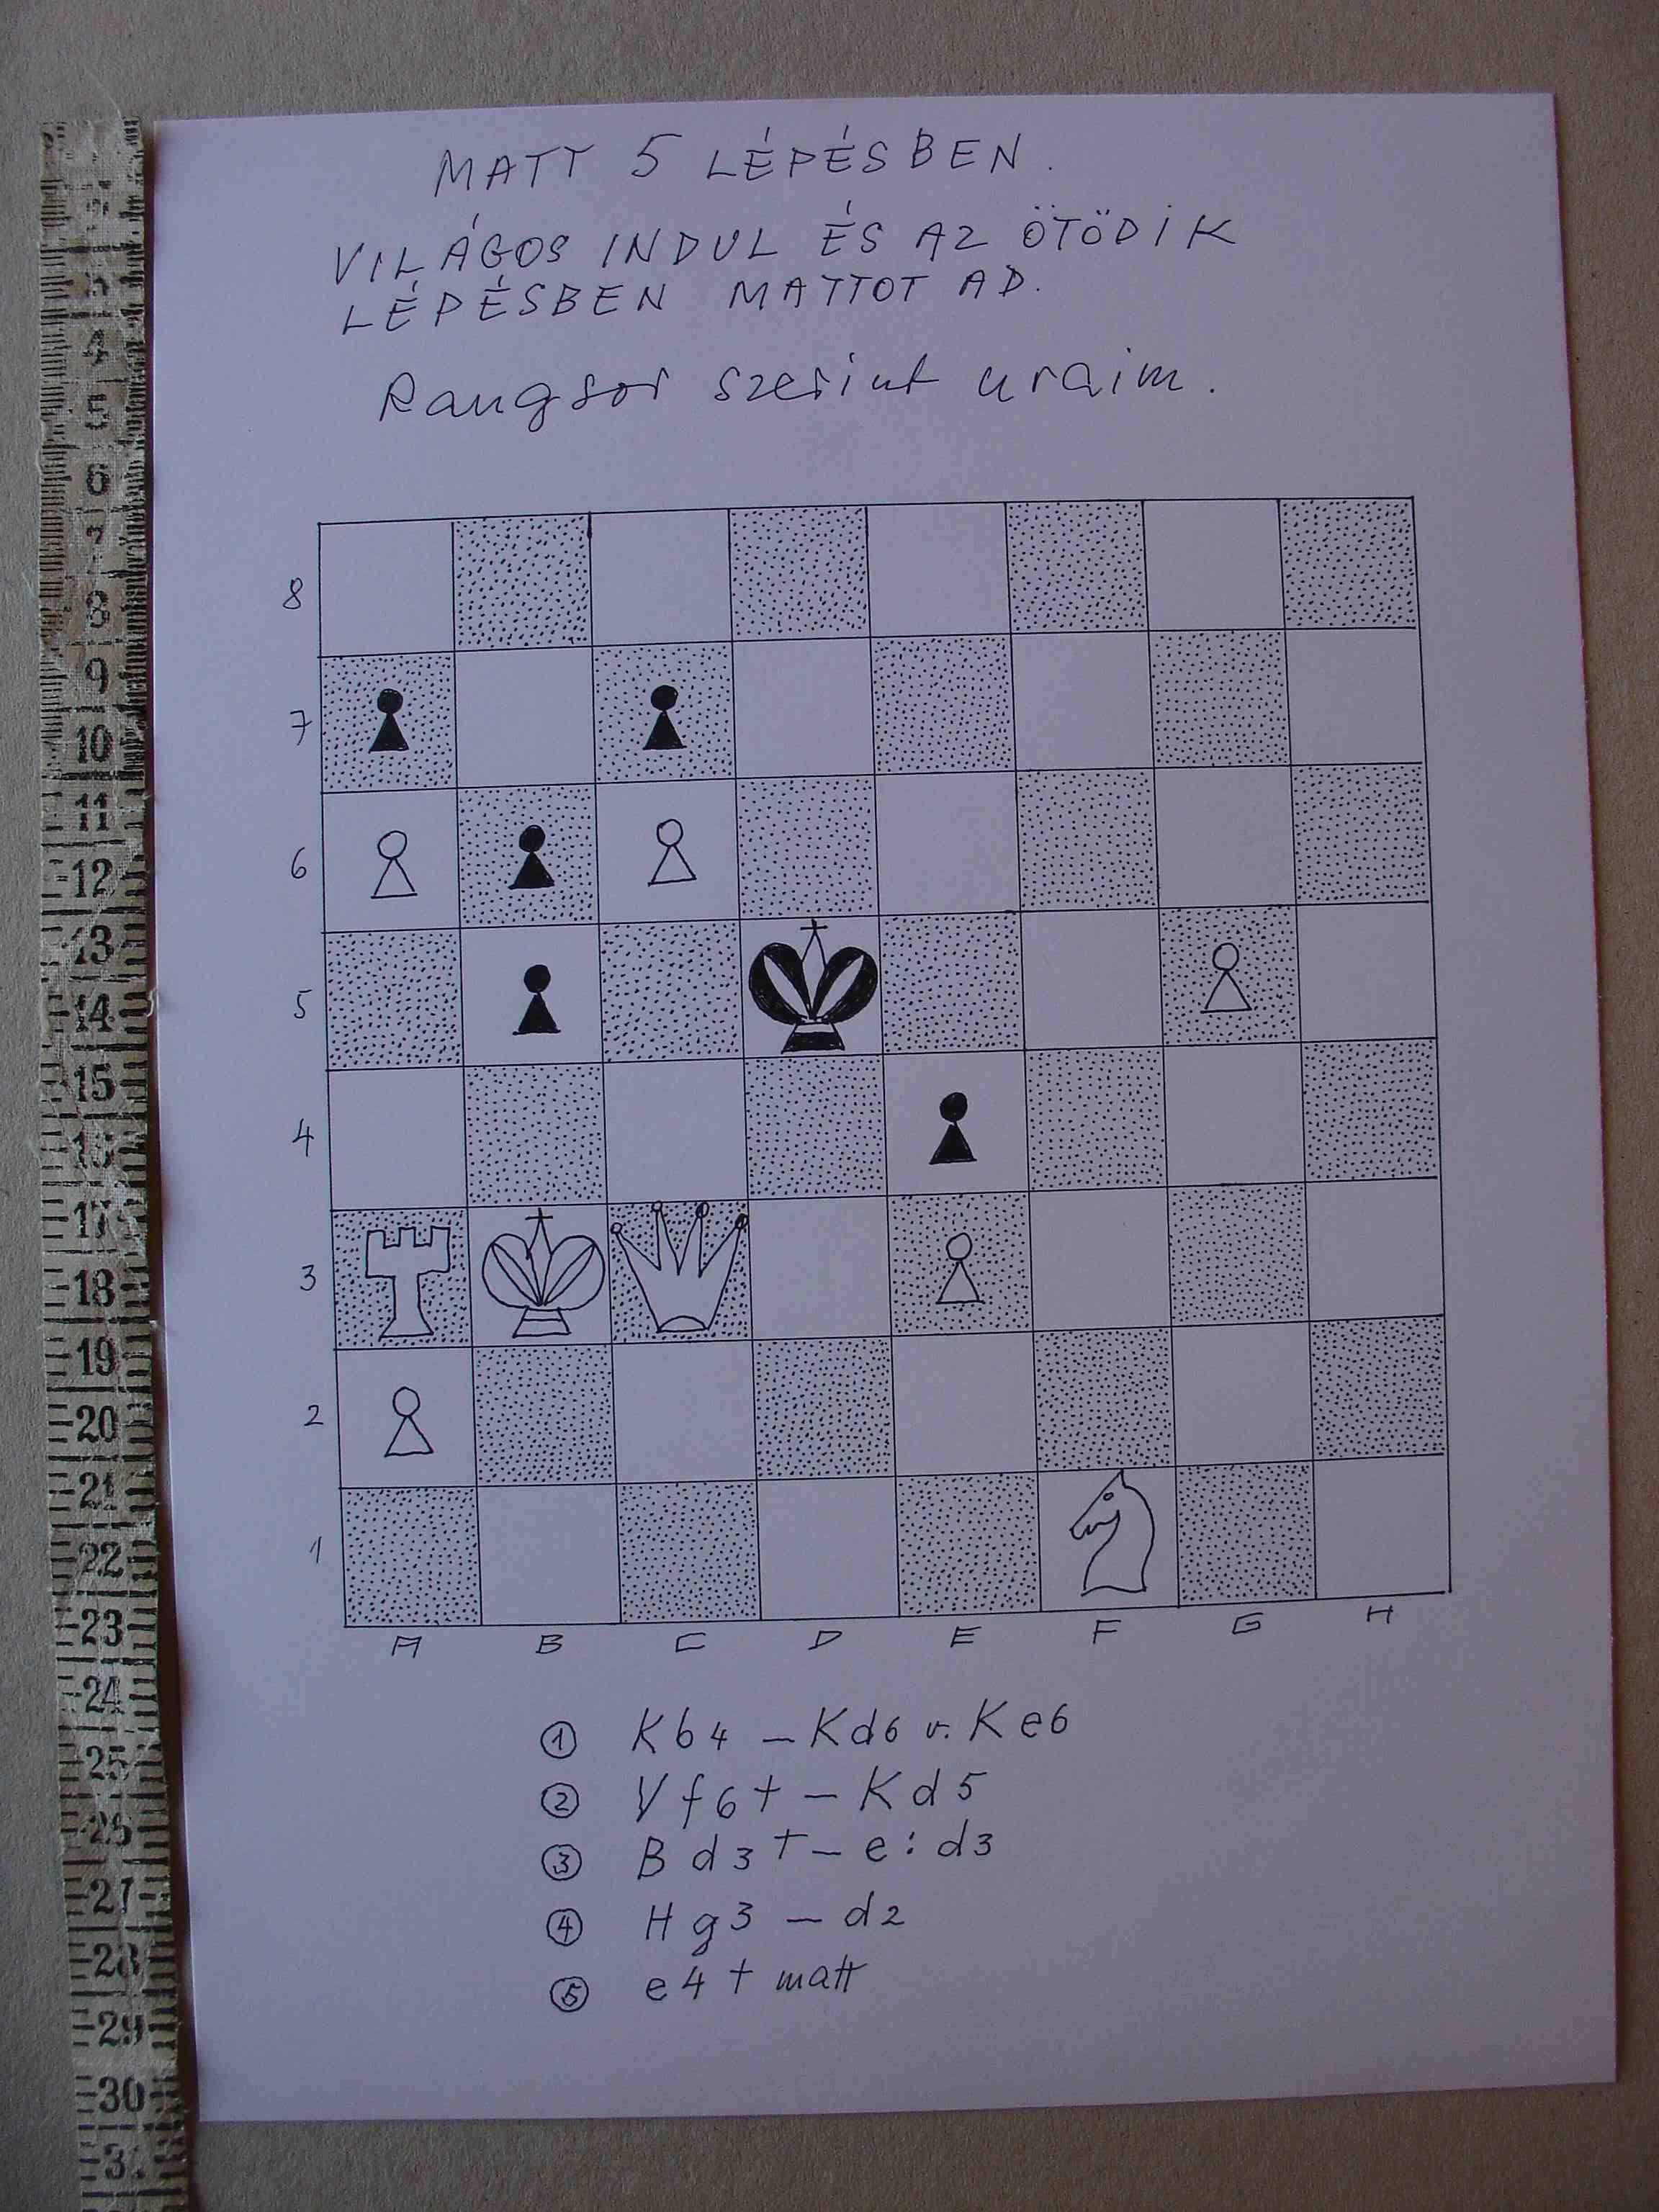 MATT 5 LÉPÉSBEN.
VILÁGOS INDUL ÉS AZ ÖTÖDIK
LÉPÉSBEN MATTOT AD.
Rangsor szerint uraim.
8
7
6
5
4
3
2
1
A B C D E F G H
① Kb4 – Kd6 v. Ke6
② Vf6+ – Kd5
③ Bd3+ – e:d3
④ Hg3 – d2
⑤ e4+ matt
4
5
6
7
8
9
10
11
12
13
14
15
16
17
18
19
20
21
22
23
24
25
26
27
28
29
30